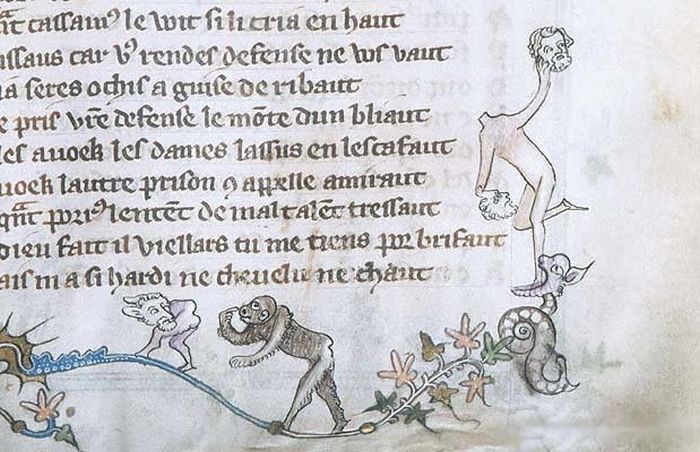 cassamꝰ le wit si li cria en haut
assaus car vꝰ rendes defense ne vꝰ vaut
ia seres ochis a guise de ribaut
pris vr̃e defense le mõte dun bliaut
les auoek les dames lassus en lescafaut
uoek lautre prison ꝯ appelle amiraut
qñt porꝰ lentent de maltalẽt tressaut
dieu fait il viellars tu me tiens por brifaut
ais m a si hardi ne cheuelu ne chaut